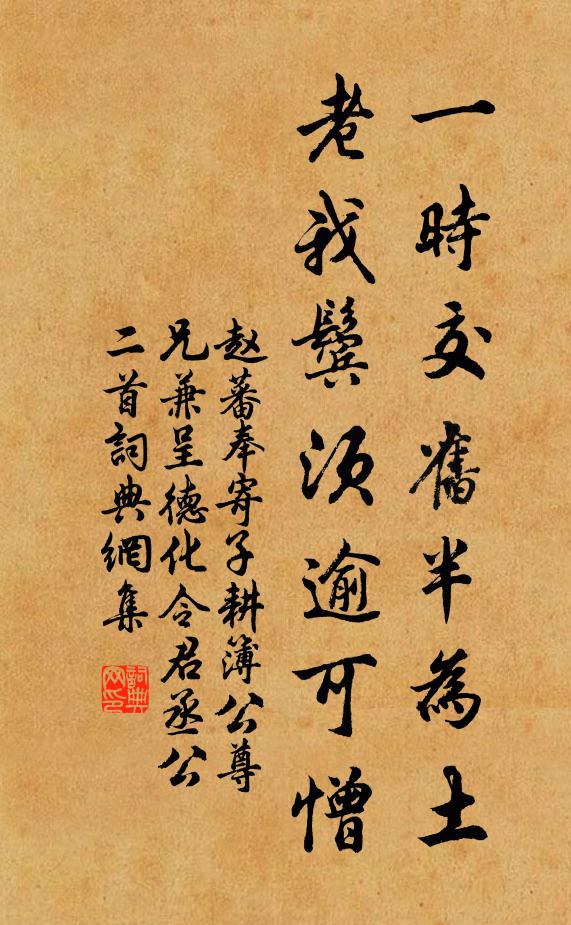 一時交舊半為土
老我鬢須逾可憎
赵蕃奉寄子耕簿公尊
兄兼呈德化令君丞公
二首詞典網集
詞典网印